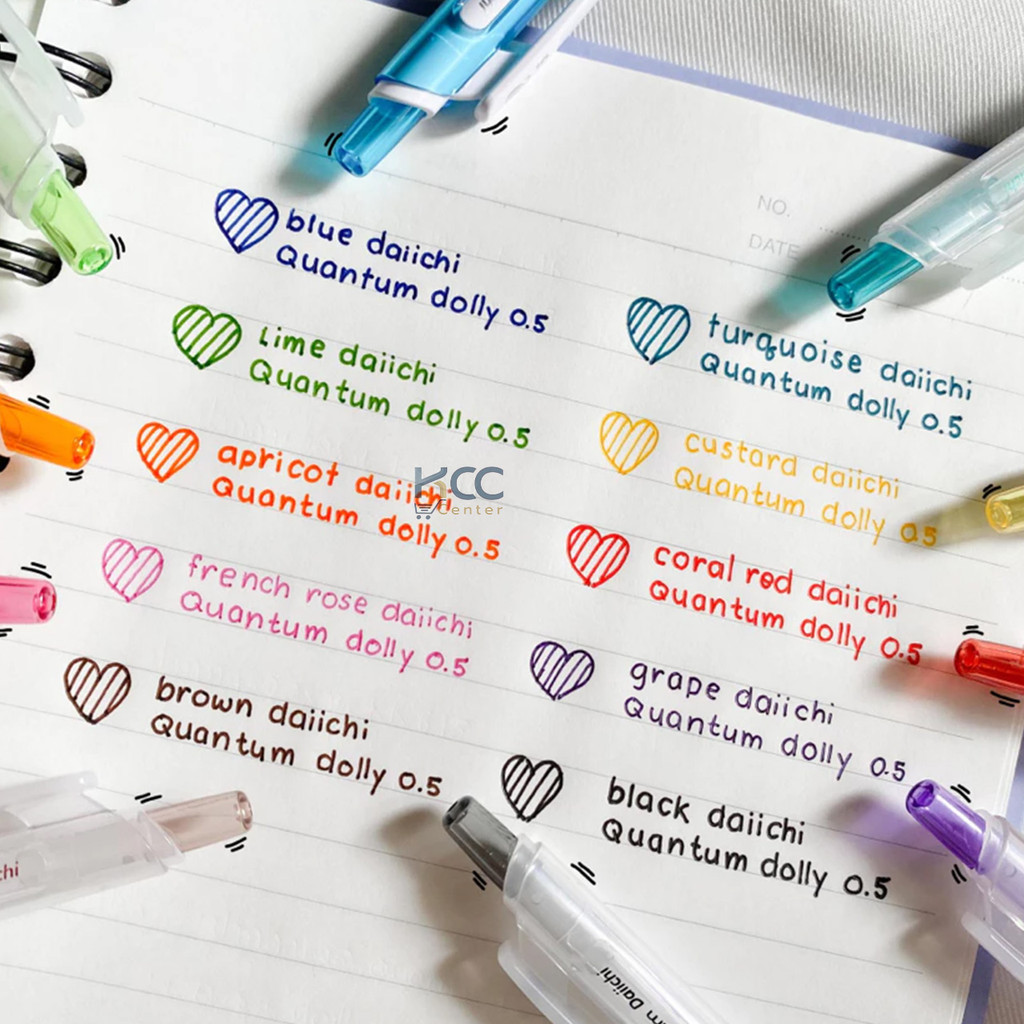 NO.
DATE
blue daiichi
Quantum dolly 0.5
turquoise daiichi
Quantum dolly 0.5
Lime daiichi
Quantum dolly 0.5
custard daiichi
Quantum dolly 0.5
apricot daiichi
Quantum dolly 0.5
KCC
Center
coral red daiichi
Quantum dolly 0.5
french rose daiichi
Quantum dolly 0.5
grape daiichi
Quantum dolly 0.5
brown daiichi
Quantum dolly 0.5
black daiichi
Quantum dolly 0.5
Daiichi